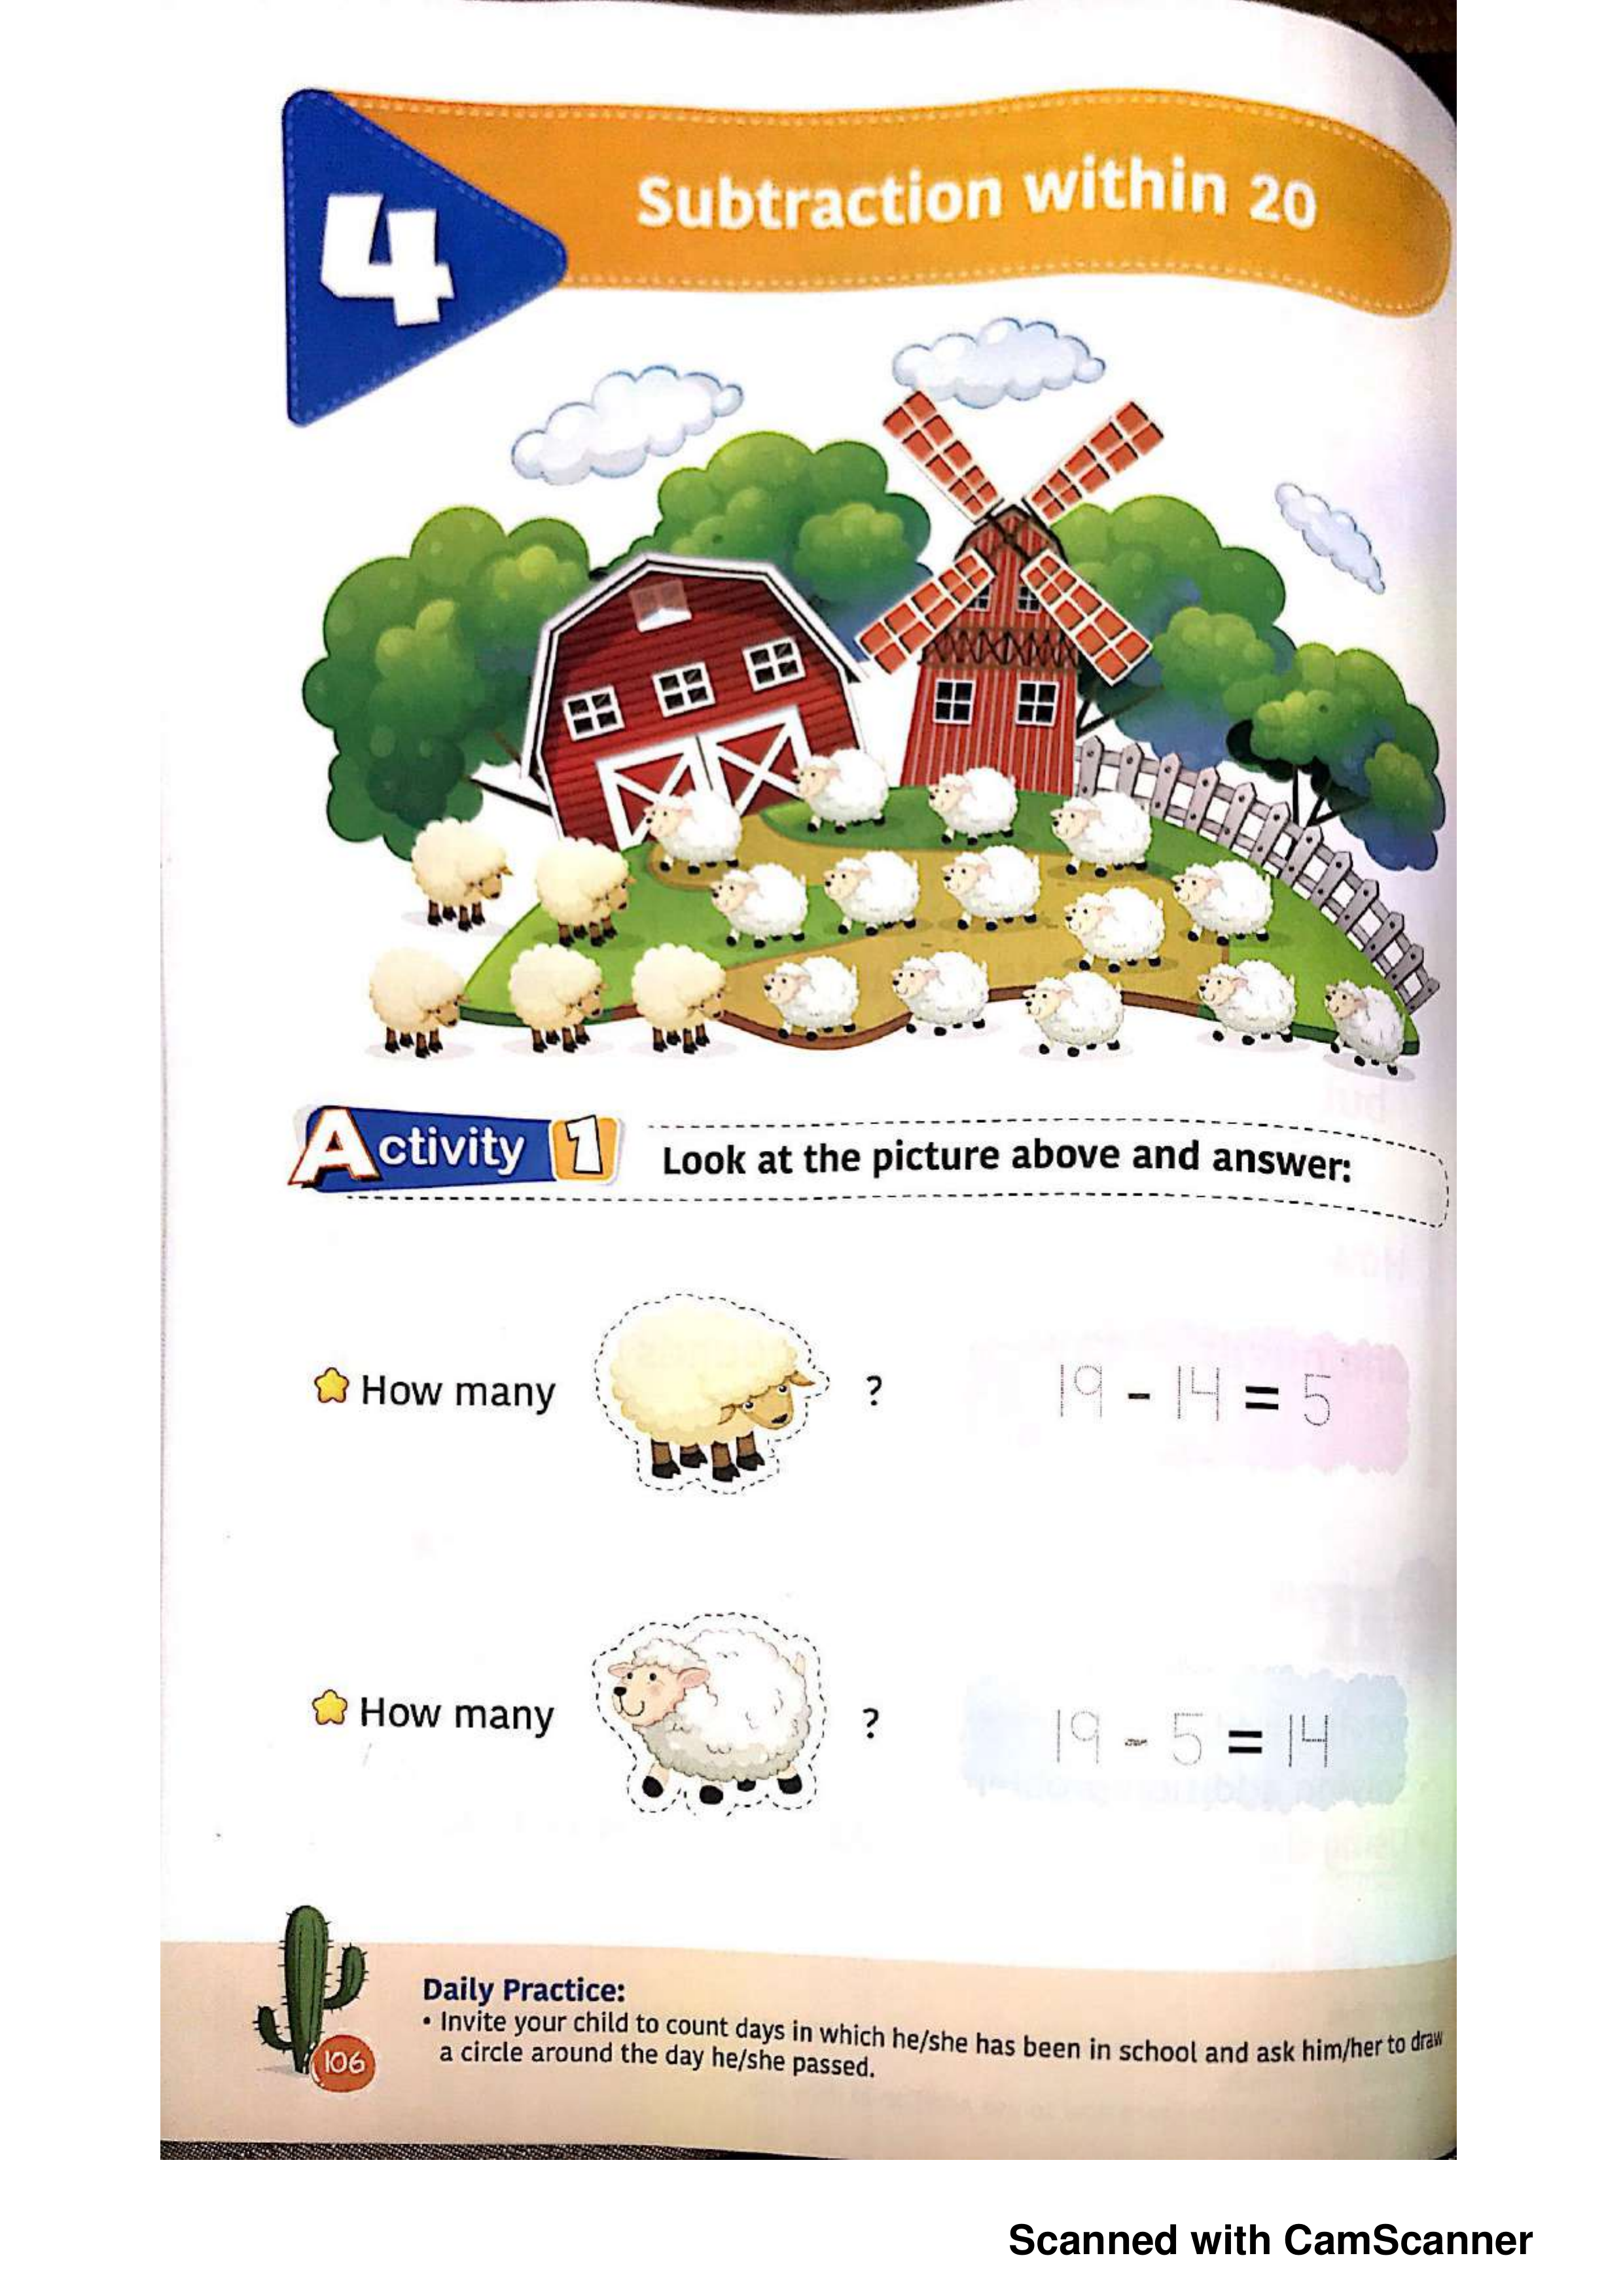 4
Subtraction within 20
Activity 1
Look at the picture above and answer:
How many ? 19 - 14 = 5
How many ? 19 - 5 = 14
Daily Practice:
• Invite your child to count days in which he/she has been in school and ask him/her to draw
a circle around the day he/she passed.
106
Scanned with CamScanner